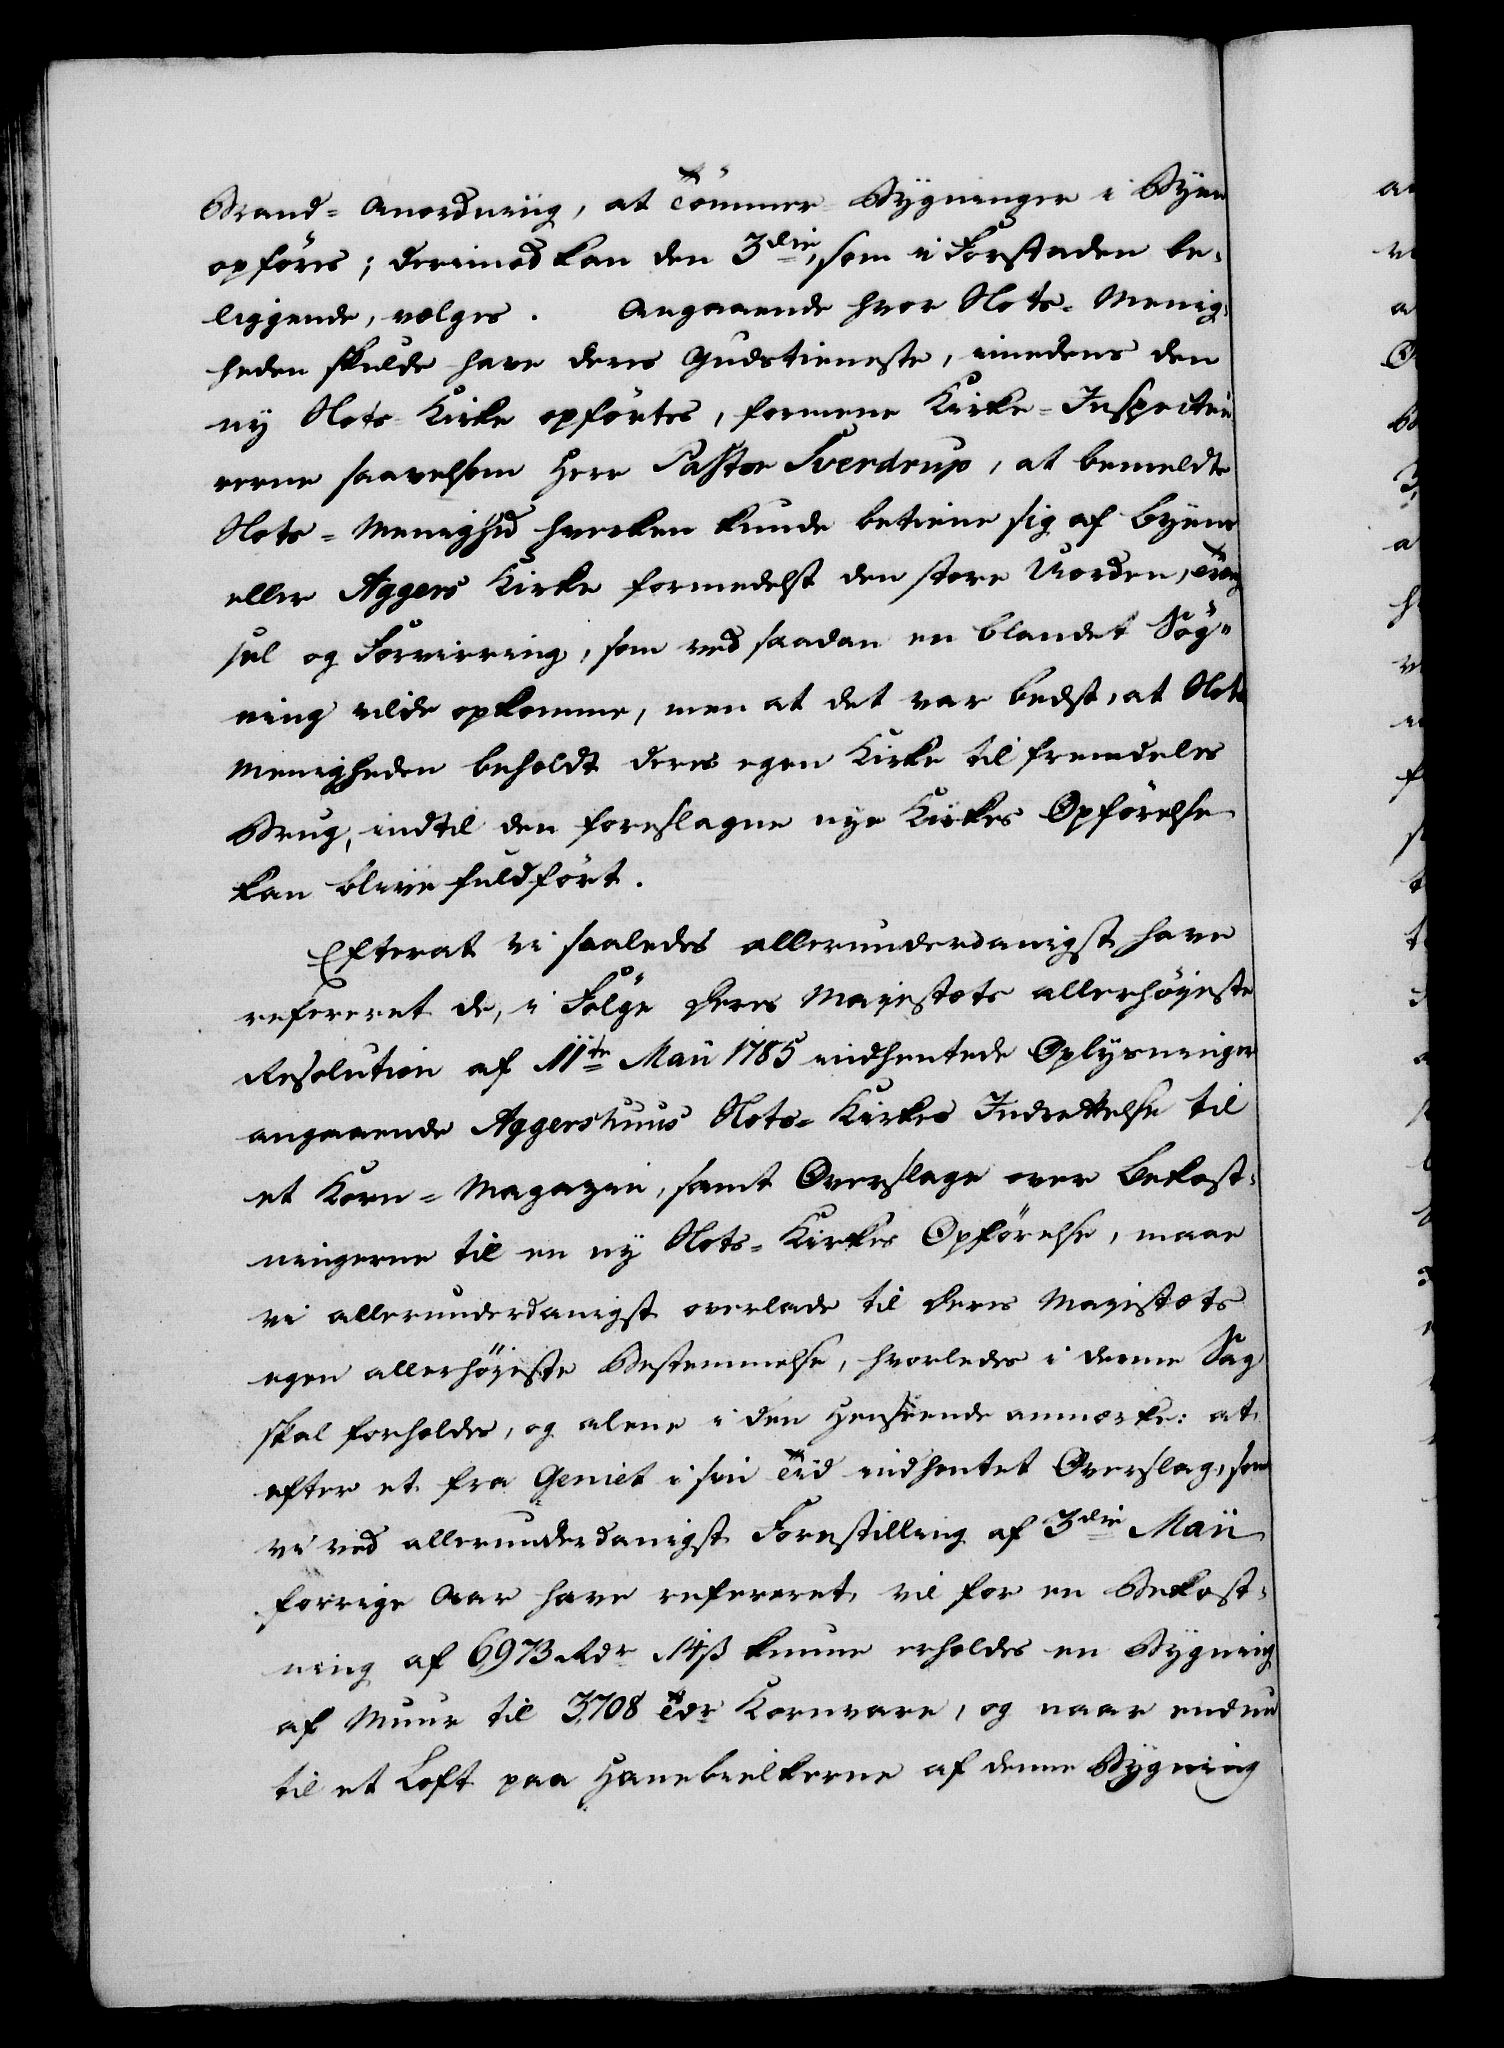 Brand-Anordning, at Tömmer Bygninger i Byen
opföres; derimod kan den 3die, som i Forstaden be-
liggende, vælges. Angaaende hvor Slots-Menig-
heden skulde have deres Gudstieneste, imedens den
ny Slots-Kirke opförtes, formene Kirke-Inspecteu-
rerne saavelsom Herr Pastor Sverdrup, at bemeldte
Slots-Menighed hverken kunde betiene sig af Byens
eller Aggers Kirke formedelst den store Uorden, Træng
sel og Forvirring, som ved saadan en blandet Sög-
ning vilde opkomme, men at det var bedst, at Slots
Menigheden beholdt deres egen Kirke til fremdeles
Brug, indtil den foreslagne nye Kirkes Opförelse
kan blive fuldfört.
Efterat vi saaledes allerunderdanigst have
refereret de, i Fölge Deres Majestæts allerhöyeste
Resolution af 11te Maii 1785 indhentede Oplysninger
angaaende Aggershuus Slots-Kirkes Indrettelse til
et Korn-Magazin, samt Overslage over Bekost-
ningerne til en ny Slots-Kirkes Opförelse, maae
vi allerunderdanigst overlade til Deres Majestæts
egen allerhöyeste Bestemmelse, hvorledes i denne Sag
skal forholdes, og alene i den Henseende anmærke: at
efter et fra Geniet i sin Tid indhentet Overslag, som
vi ved allerunderdanigst Forestilling af 3die Maii
forrige Aar have refereret, vil for en Bekost-
ning af 6973 Rdr 14 ß kunne erholdes en Bygning
af Muur til 3708 Tdr Kornvare, og naar endnu
til et Loft paa Hanebielkerne af denne Bygning